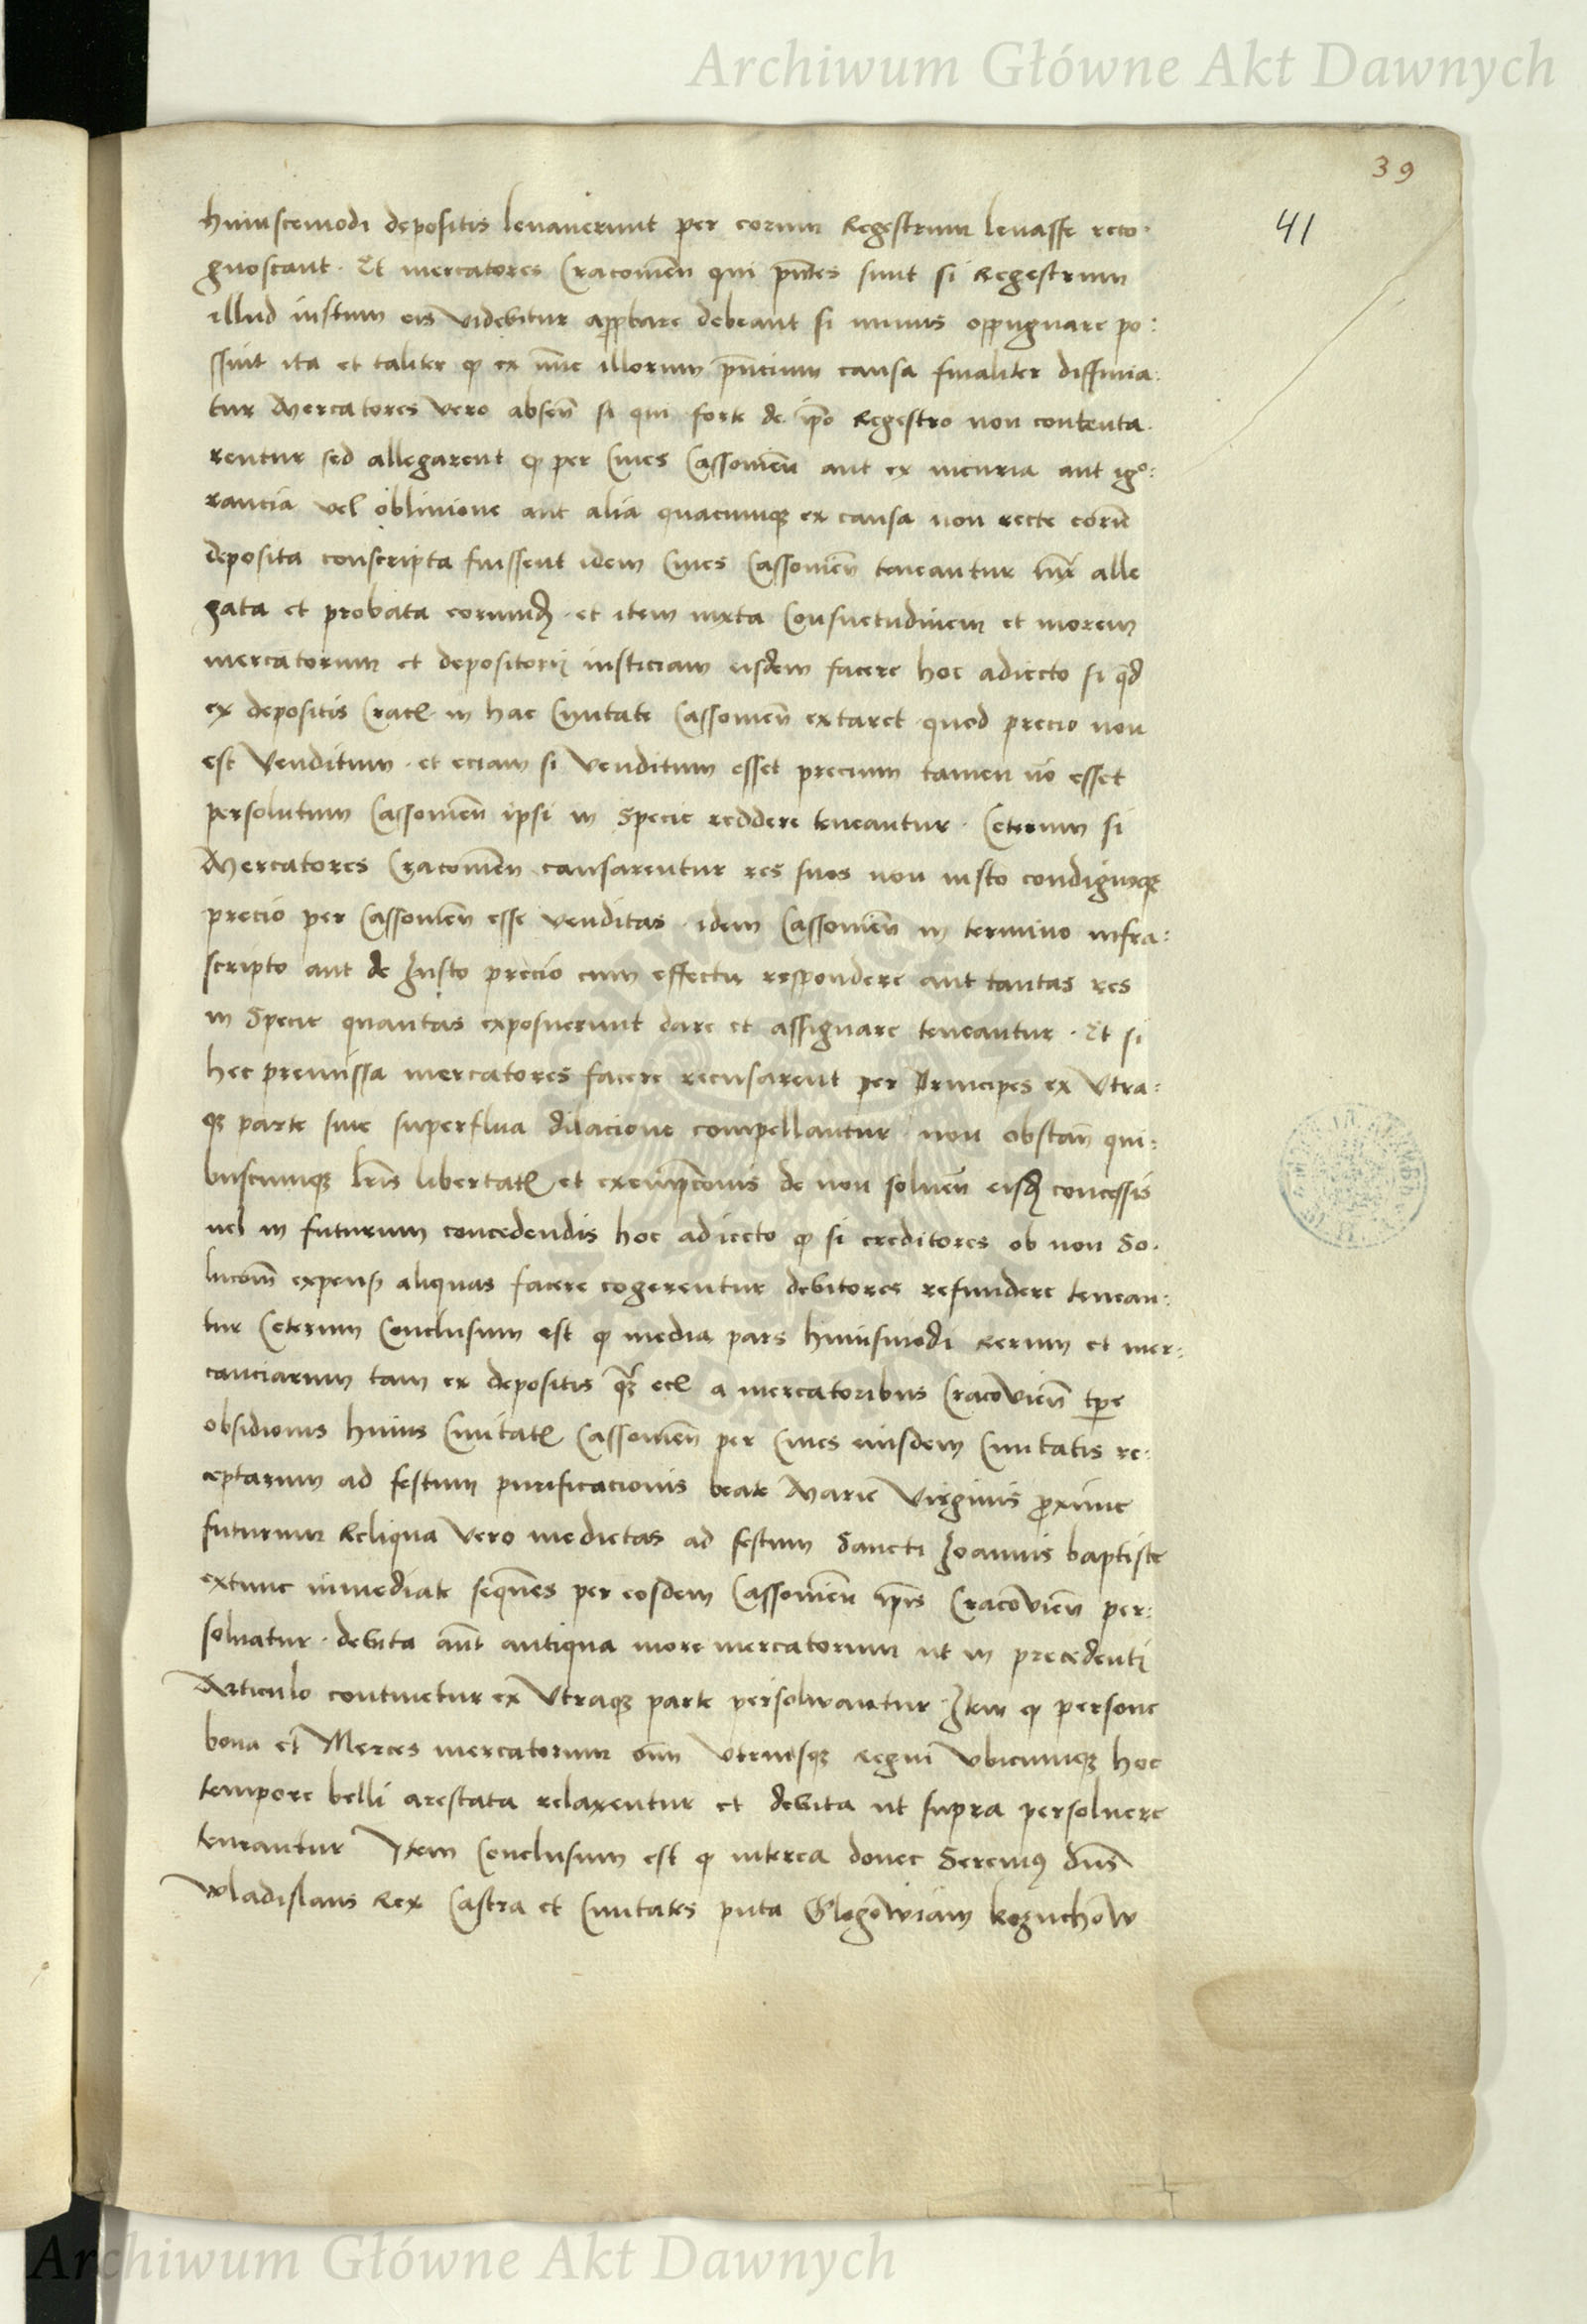 Archiwum Główne Akt Dawnych
39
41
huiuscemodi depositis levaverunt per eorum Regestrum levasse reco·
gnoscant · Et mercatores Cracovien̄ qui pn̄tes sunt si Regestrum
illud iustum eis videbitur approbare debeant si minus oppugnare po:
ssint ita et taliter ꝙ ex nūc illorum pn̄cium causa finaliter diffinia:
tur Mercatores vero absen̄ si qui forte de ip̄o Regestro non contenta·
rentur sed allegarent ꝙ per Cives Cassovien̄ aut ex incuria aut igº:
rancia vel oblivione aut alia quacumqꝫ ex causa non recte eorū
deposita conscripta fuissent idem Cives Cassovien̄ teneantur alle
gata et probata eorumd̄ · et item iuxta Consuetudinem et morem
mercatorum et depositorū iusticiam eisdem facere hoc adiecto si qd̄
ex depositis Cracꝭ in hac Civitate Cassovien̄ extaret quod precio non
est Venditum · et eciam si Venditum esset precium tamen nō esset
persolutum Cassovien̄ ipsi in Specie reddere teneantur · Ceterum si
Mercatores Cracovien̄ causarentur res suas non iusto condignoqꝫ
precio per Cassovien̄ esse venditas · idem Cassovien̄ in termino infra:
scripto aut de Iusto precio cum effectu respondere aut tantas res
in Specie quantas exposuerunt dare et assignare teneantur · Et si
hec premissa mercatores facere recusarent per Principes ex Utra:
qꝫ parte sine superflua dilacione compellantur · non obstan̄ qui:
buscumqꝫ lr̄is libertatꝭ et exempcionis de non solven̄ eisd̄ concessis
vel in futurum concedendis hoc adiecto ꝙ si creditores ob non So·
lucōm expensꝭ aliquas facere cogerentur debitores refundere tenean:
tur Ceterum Conclusum est ꝙ media pars huiusmodi Rerum et mer:
canciarum tam ex depositis qꝫ ecꝭ a mercatoribus Cracovien̄ tp̄re
obsidionis huius Civitatꝭ Cassovien̄ per Cives eiusdem Civitatis re:
ceptarum ad festum purificacionis beate Marie Virginis proxime
futurum Reliqua vero medietas ad festum Sancti Ioannis baptiste
extunc inmediate sequen̄s per eosdem Cassovien̄ ip̄is Cracovien̄ per:
solvatur · debita aūt antiqua more mercatorum ut in precedenti
Articulo continetur ex Utraqꝫ parte persolvantur · Item ꝙ persone
bona et Merces mercatorum oīm Utriusqꝫ Regni Ubicumqꝫ hoc
tempore belli arestata relaxentur et debita ut supra persolvere
teneantur Item Conclusum est ꝙ interea donec Serenīꝰ dn̄s
Wladislaus Rex Castra et Civitates puta Glogowiam kozuchow
Archiwum Główne Akt Dawnych